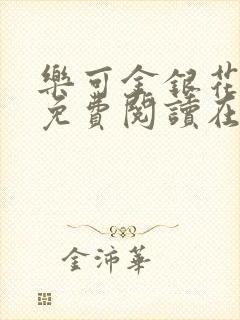 樂可金銀花
免費閱讀在
金沛華